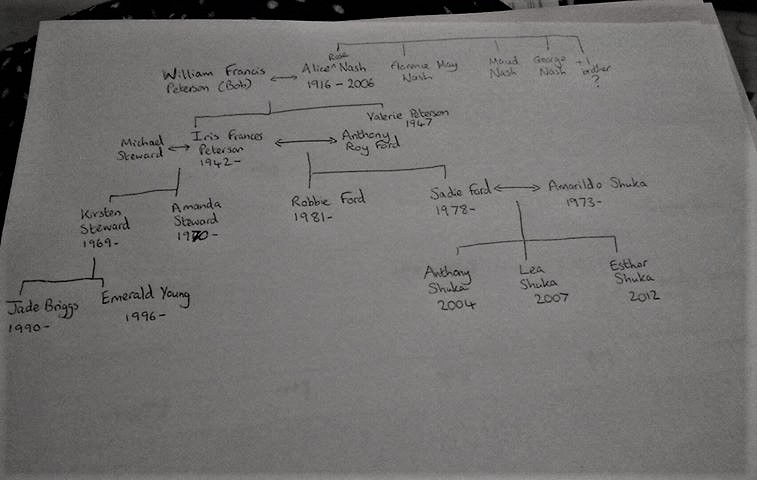 Rose
William Francis
Peterson (Bob)
Alice ^ Nash
1916 - 2006
Florence May
Nash
Maud
Nash
George
Nash
+1
brother
?
Valerie Peterson
1947
Michael
Steward
Iris Frances
Peterson
1942-
Anthony
Roy Ford
Kirsten
Steward
1969-
Amanda
Steward
1970-
Robbie Ford
1981-
Sadie Ford
1978-
Amarildo Shuka
1973-
Jade Briggs
1990-
Emerald Young
1996-
Anthony
Shuka
2004
Lea
Shuka
2007
Esther
Shuka
2012